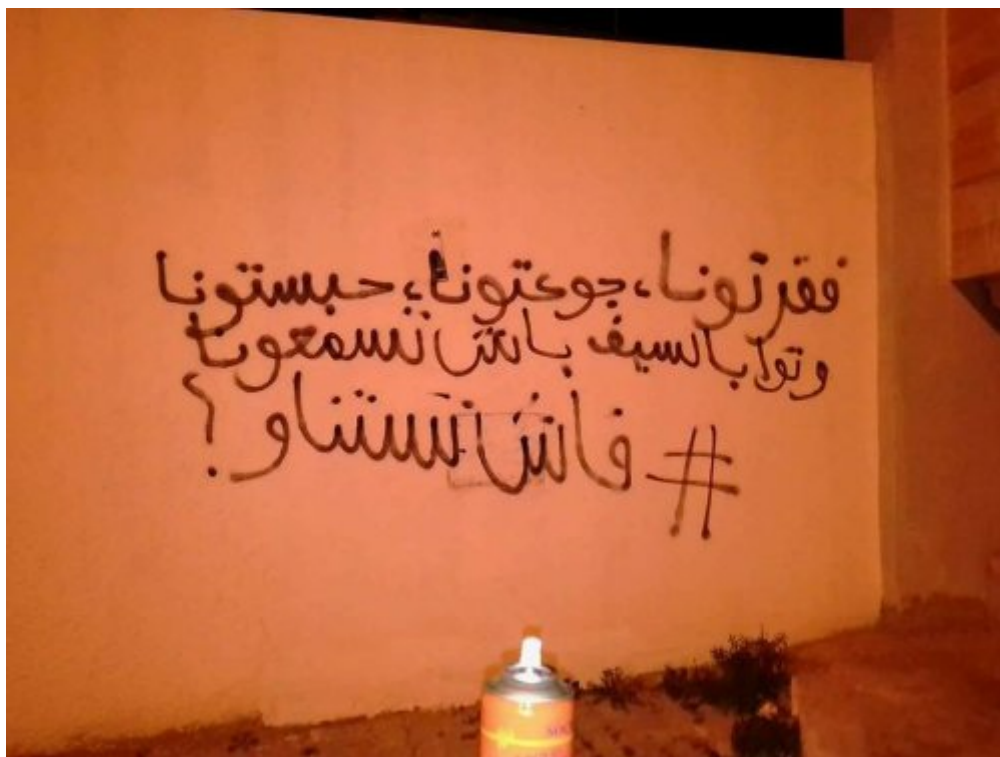 فقرتونا، جوعتونا، حبستونا
وتوا بالسيف باش تسمعونا
#فاش نستناو؟